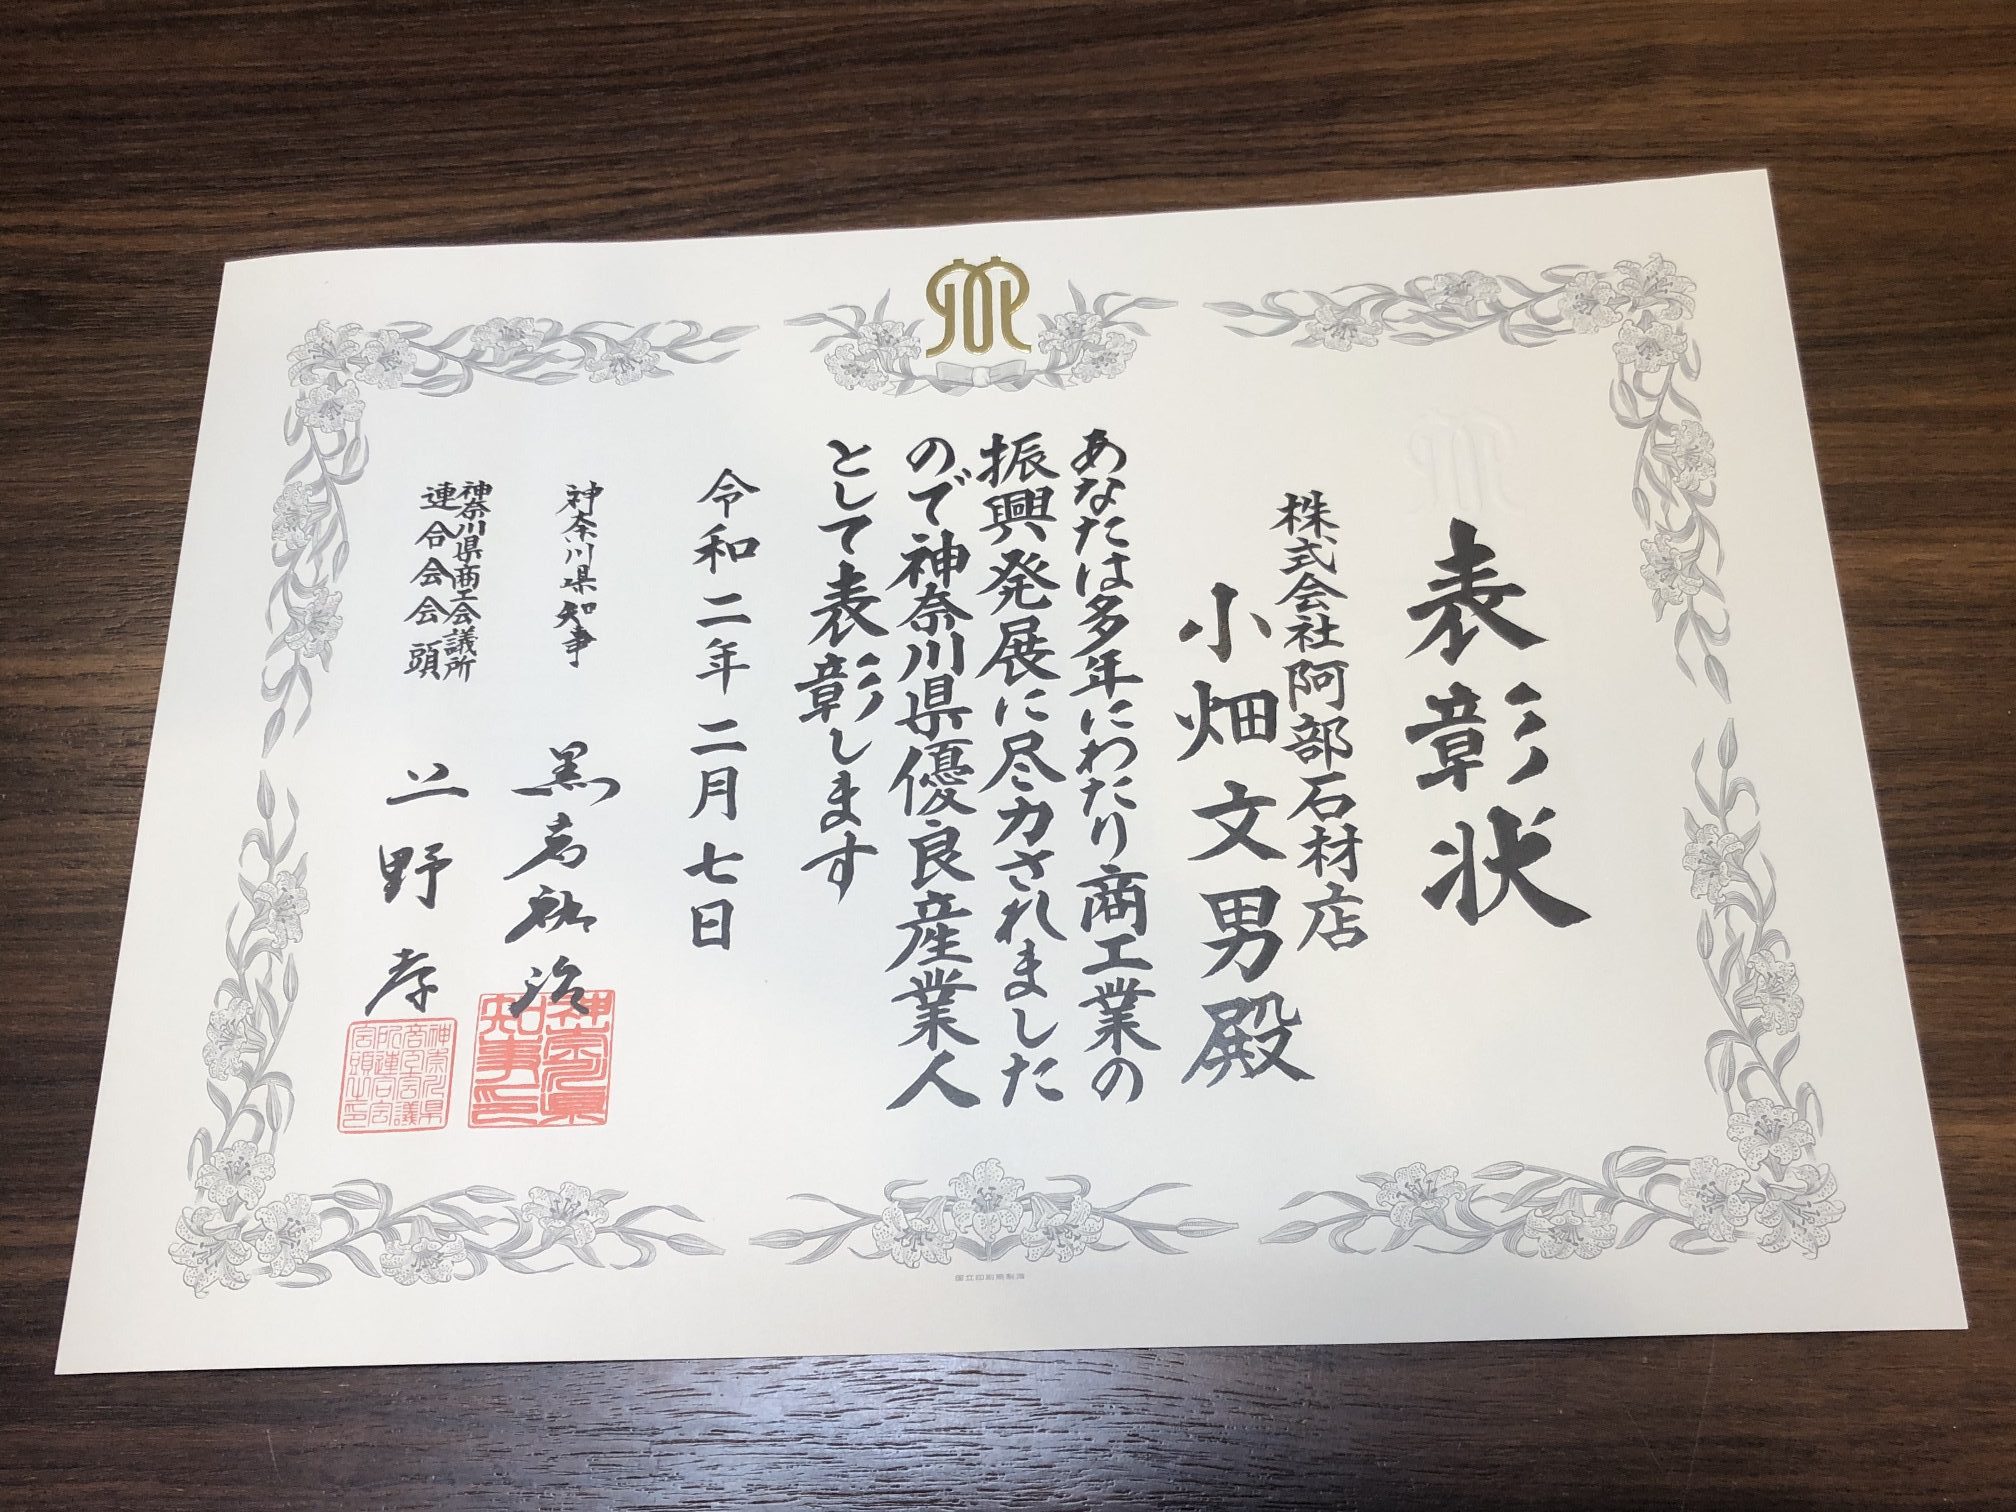 表彰状
株式会社阿部石材店
小畑文男殿
あなたは多年にわたり商工業の
振興発展に尽力されました
ので神奈川県優良産業人
として表彰します
令和二年二月七日
神奈川県知事
黒岩祐治
神奈川県知事印
神奈川県商工会議所
連合会会頭
上野孝
神奈川県商工会議所連合会会頭之印
国立印刷局製造